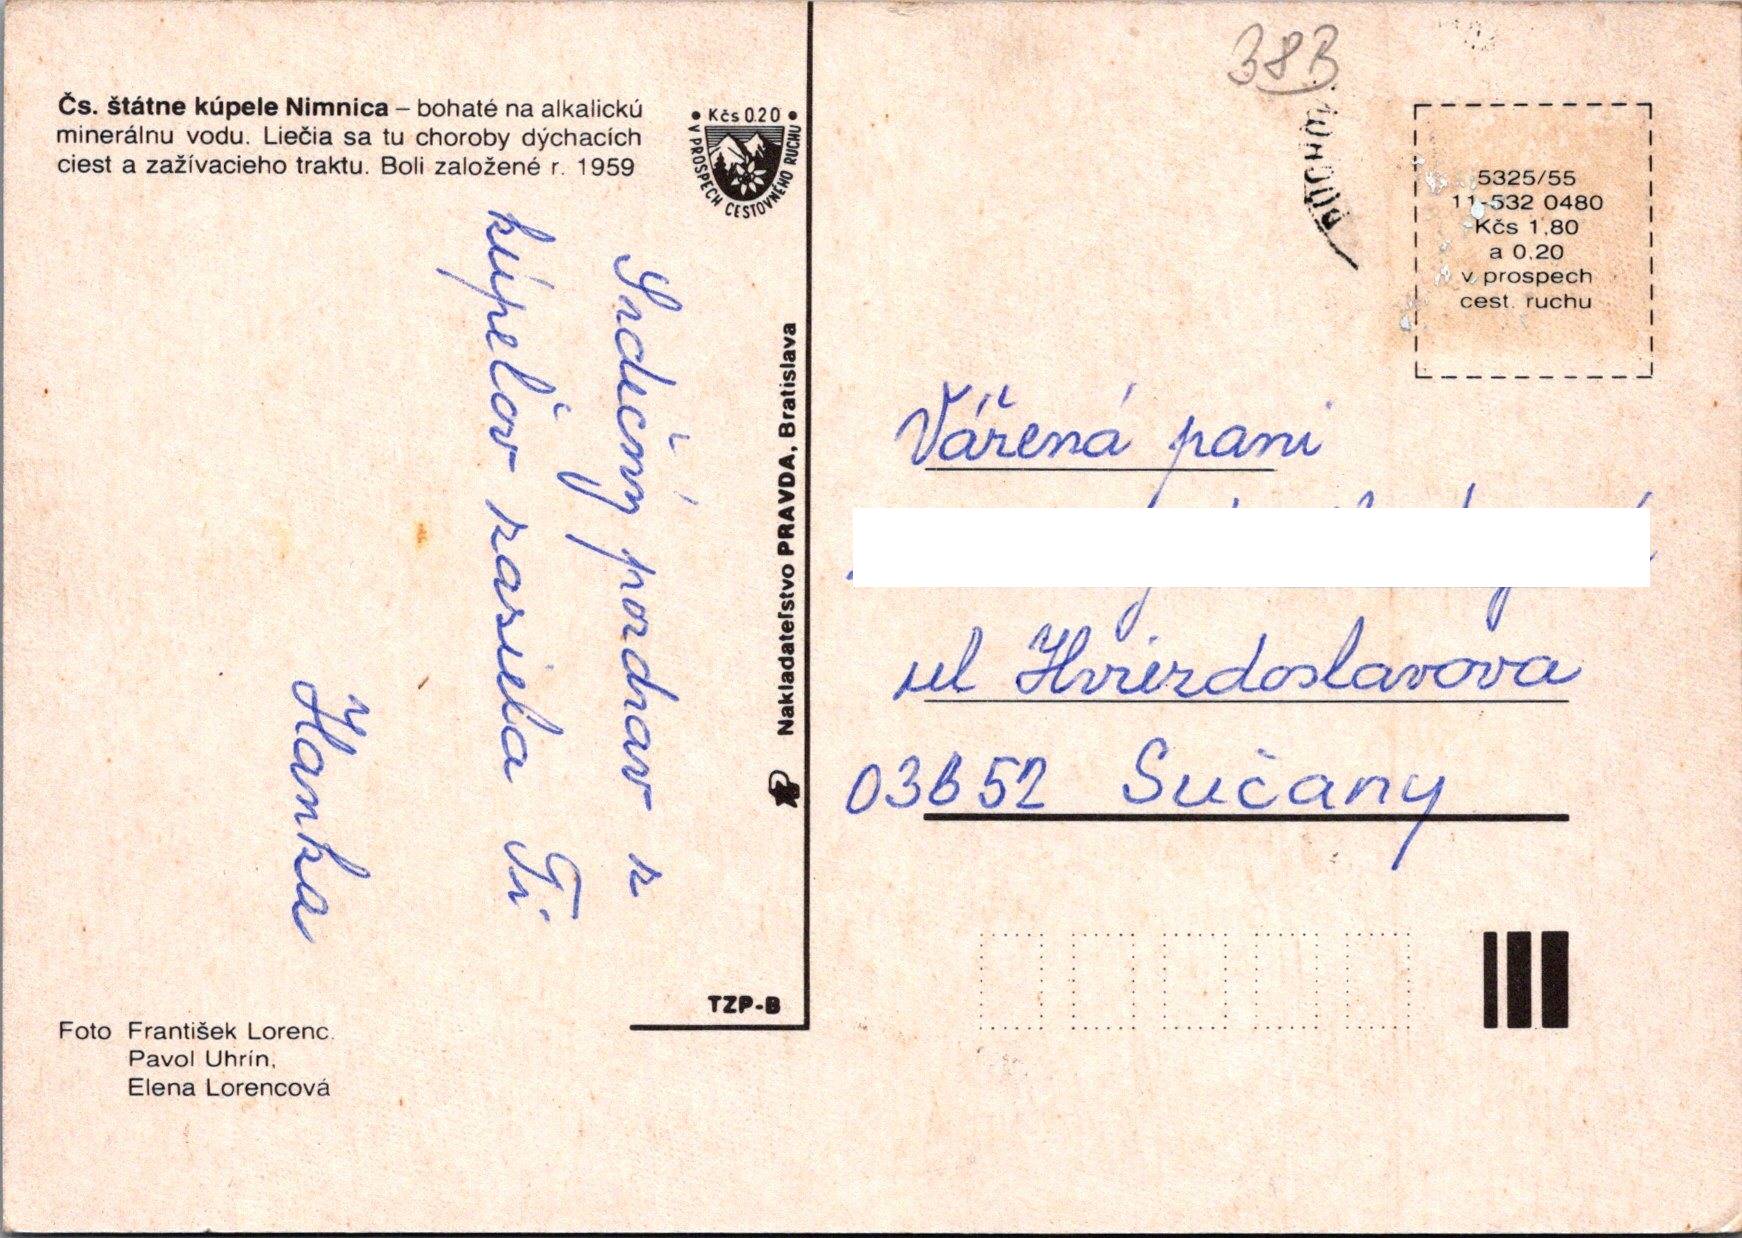 Čs. štátne kúpele Nimnica – bohaté na alkalickú
minerálnu vodu. Liečia sa tu choroby dýchacích
ciest a zažívacieho traktu. Boli založené r. 1959
• Kčs 0.20 •
V PROSPECH CESTOVNÉHO RUCHU
Srdečný pozdrav z
kúpeľov zasiela Ti
Hanka
Nakladateľstvo PRAVDA, Bratislava
TZP-B
Foto František Lorenc.
Pavol Uhrín,
Elena Lorencová
38B
PÚCHOV
5325/55
11-532 0480
Kčs 1,80
a 0,20
v prospech
cest. ruchu
Vážená pani
ul Hviezdoslavova
03852 Sučany